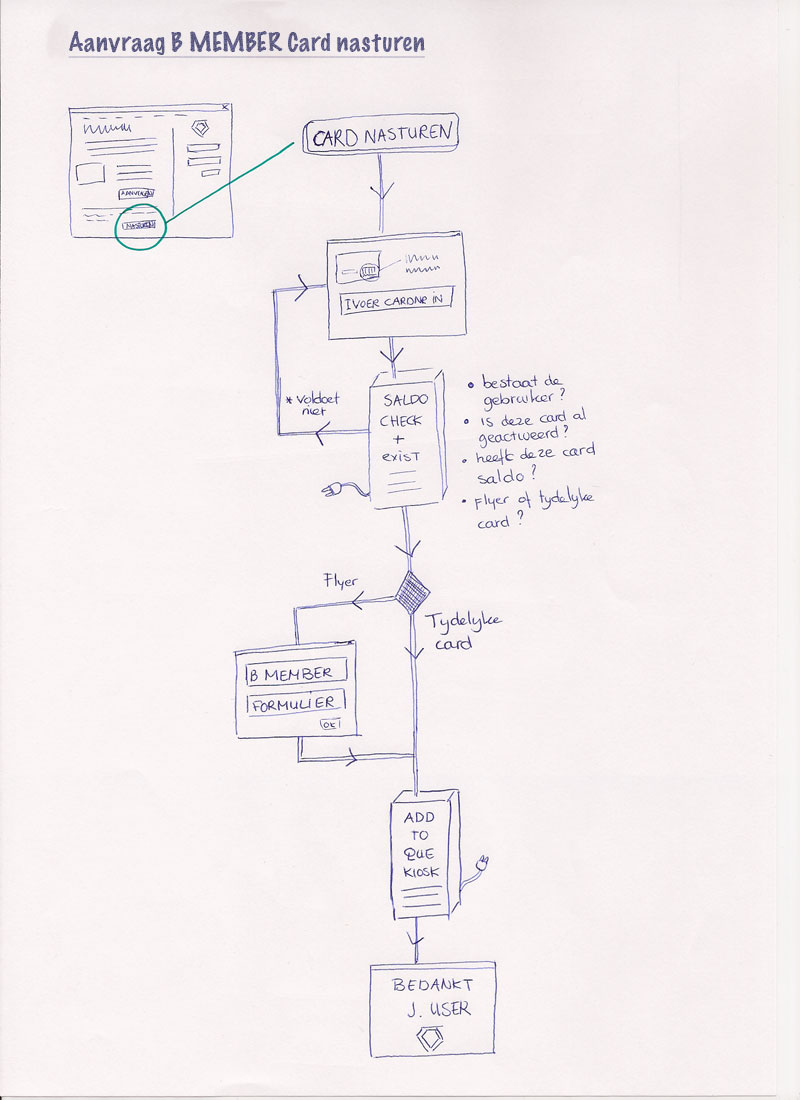 Aanvraag B MEMBER Card nasturen
AANVRAGEN
NASTUREN
CARD NASTUREN
IVOER CARDNR IN
* voldoet
niet
SALDO
CHECK
+
exist
• bestaat de
gebruiker?
• is deze card al
geactiveerd?
• heeft deze card
saldo?
• Flyer of tydelyke
card?
Flyer
Tydelyke
card
B MEMBER
FORMULIER
OK
ADD
TO
QUE
KIOSK
BEDANKT
J. USER